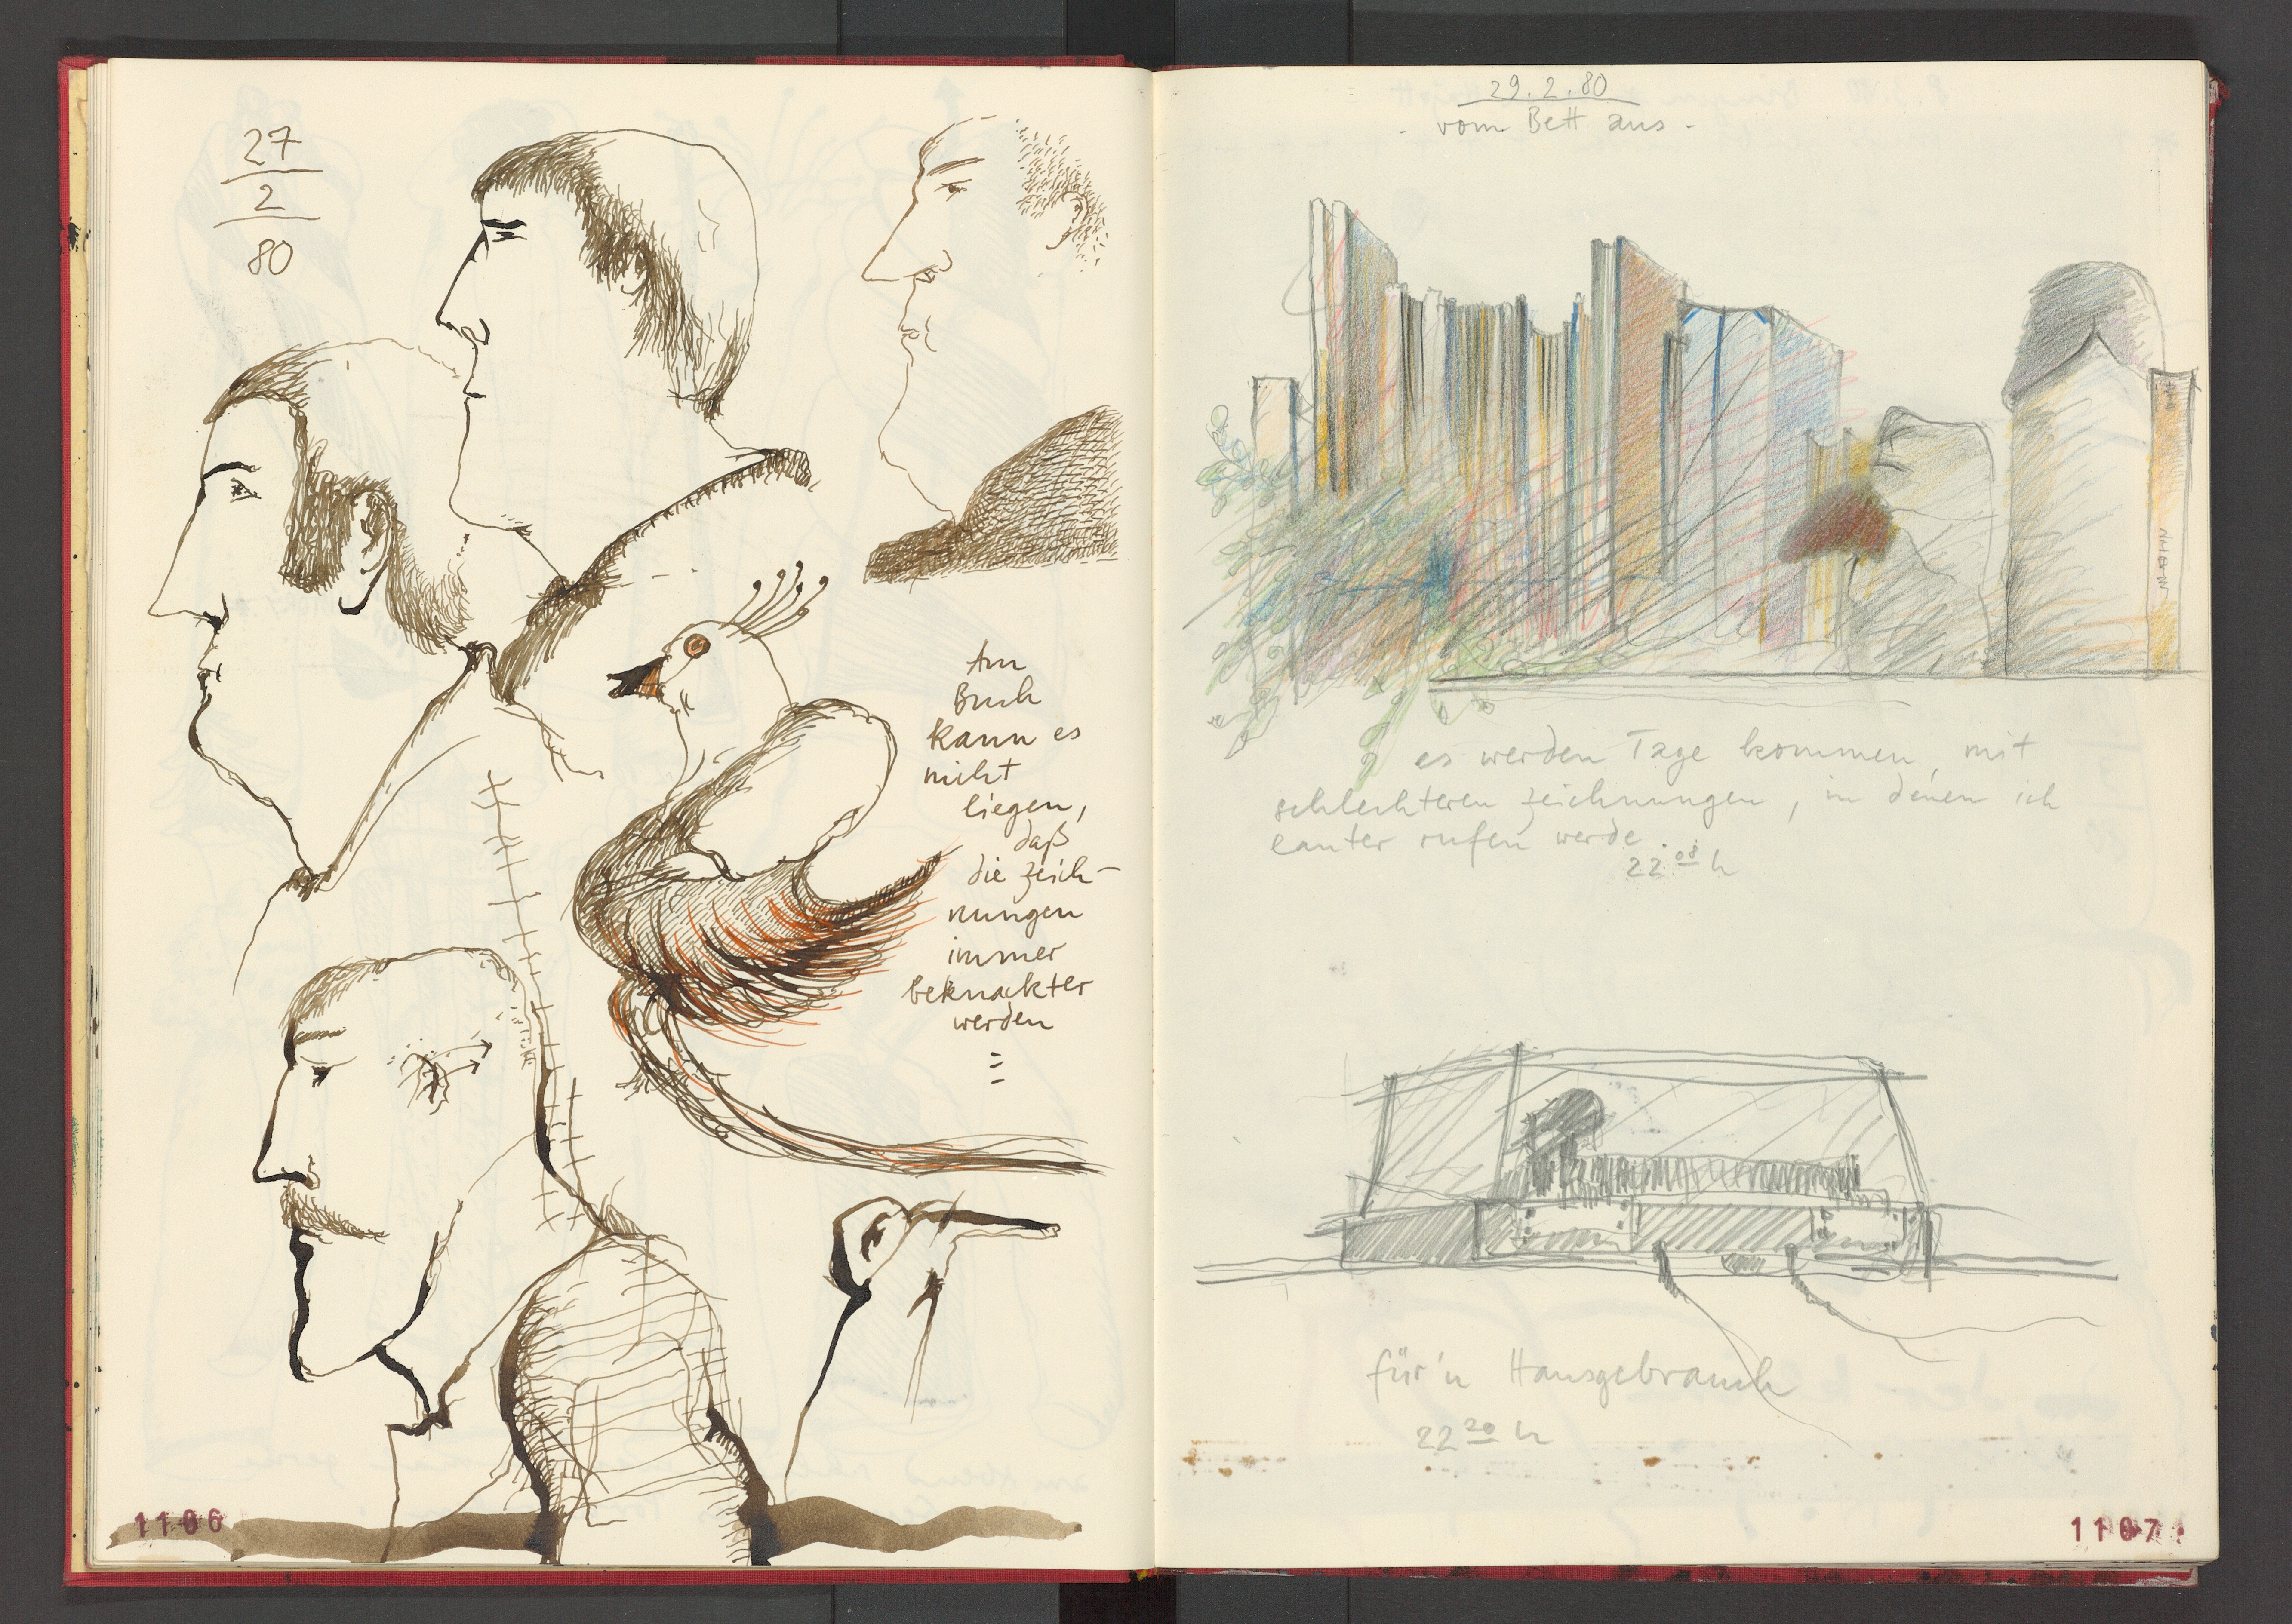 27
2
80
Am
Buch
kann es
nicht
liegen,
daß
die zeich-
nungen
immer
beknackter
werden
1106
29.2.80
- vom Bett aus -
es werden Tage kommen, mit
schlechteren zeichnungen, in denen ich
lauter rufen werde.
22 08 h
für'n Hausgebrauch
22 20 h
1107